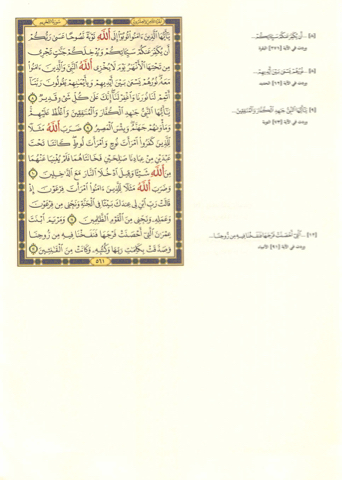 يَٰٓأَيُّهَا ٱلَّذِينَ ءَامَنُوا۟ تُوبُوٓا۟ إِلَى ٱللَّهِ تَوْبَةً نَّصُوحًا عَسَىٰ رَبُّكُمْ
أَن يُكَفِّرَ عَنكُمْ سَيِّـَٔاتِكُمْ وَيُدْخِلَكُمْ جَنَّٰتٍ تَجْرِى
مِن تَحْتِهَا ٱلْأَنْهَٰرُ يَوْمَ لَا يُخْزِى ٱللَّهُ ٱلنَّبِىَّ وَٱلَّذِينَ ءَامَنُوا۟
مَعَهُۥ نُورُهُمْ يَسْعَىٰ بَيْنَ أَيْدِيهِمْ وَبِأَيْمَٰنِهِمْ يَقُولُونَ رَبَّنَآ
أَتْمِمْ لَنَا نُورَنَا وَٱغْفِرْ لَنَآ إِنَّكَ عَلَىٰ كُلِّ شَىْءٍ قَدِيرٌ ٨
يَٰٓأَيُّهَا ٱلنَّبِىُّ جَٰهِدِ ٱلْكُفَّارَ وَٱلْمُنَٰفِقِينَ وَٱغْلُظْ عَلَيْهِمْ
وَمَأْوَىٰهُمْ جَهَنَّمُ وَبِئْسَ ٱلْمَصِيرُ ٩ ضَرَبَ ٱللَّهُ مَثَلًا
لِّلَّذِينَ كَفَرُوا۟ ٱمْرَأَتَ نُوحٍ وَٱمْرَأَتَ لُوطٍ كَانَتَا تَحْتَ
عَبْدَيْنِ مِنْ عِبَادِنَا صَٰلِحَيْنِ فَخَانَتَاهُمَا فَلَمْ يُغْنِيَا عَنْهُمَا
مِنَ ٱللَّهِ شَيْـًٔا وَقِيلَ ٱدْخُلَا ٱلنَّارَ مَعَ ٱلدَّٰخِلِينَ ١٠
وَضَرَبَ ٱللَّهُ مَثَلًا لِّلَّذِينَ ءَامَنُوا۟ ٱمْرَأَتَ فِرْعَوْنَ إِذْ
قَالَتْ رَبِّ ٱبْنِ لِى عِندَكَ بَيْتًا فِى ٱلْجَنَّةِ وَنَجِّنِى مِن فِرْعَوْنَ
وَعَمَلِهِۦ وَنَجِّنِى مِنَ ٱلْقَوْمِ ٱلظَّٰلِمِينَ ١١ وَمَرْيَمَ ٱبْنَتَ
عِمْرَٰنَ ٱلَّتِىٓ أَحْصَنَتْ فَرْجَهَا فَنَفَخْنَا فِيهِ مِن رُّوحِنَا
وَصَدَّقَتْ بِكَلِمَٰتِ رَبِّهَا وَكُتُبِهِۦ وَكَانَتْ مِنَ ٱلْقَٰنِتِينَ ١٢
٥٦١
[٨] ... أَن يُكَفِّرَ عَنكُمْ سَيِّـَٔاتِكُمْ ...
وردت في الآية [٢٧١] البقرة
[٨] ... نُورُهُمْ يَسْعَىٰ بَيْنَ أَيْدِيهِمْ ...
وردت في الآية [١٢] الحديد
[٩] يَٰٓأَيُّهَا ٱلنَّبِىُّ جَٰهِدِ ٱلْكُفَّارَ وَٱلْمُنَٰفِقِينَ ...
وردت في الآية [٧٣] التوبة
[١٢] ... ٱلَّتِىٓ أَحْصَنَتْ فَرْجَهَا فَنَفَخْنَا فِيهِ مِن رُّوحِنَا ...
وردت في الآية [٩١] الأنبياء